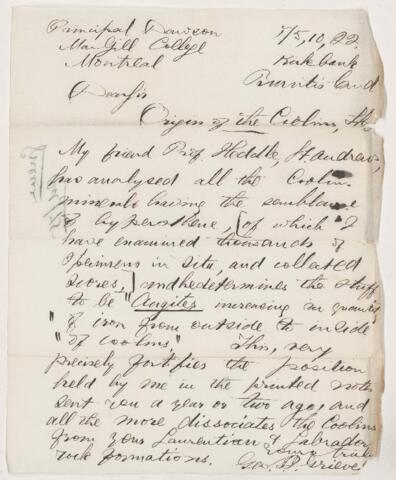 Principal Dawson
MacGill College
Montreal
7/5,10,22.
Kirkbank
Burntisland
Dear Sir
Origin of the Coolins, Skye
My friend Prof. Heddle, St. Andrews,
has analysed all the Coolin
minerals having the semblance
of hypersthene, (of which I
have examined thousands of
specimens in situ, and collected
scores,) and he determines the stuff
to be "Augites increasing in quantity
" of iron from outside to inside
" of coolins." This, very
precisely fortifies the position
held by me in the printed note
sent you a year or two ago, and
all the more dissociates the Coolins
from your Laurentian & Labrador
rock formations.
yours truly
Geo. D. Grieve
Grieve